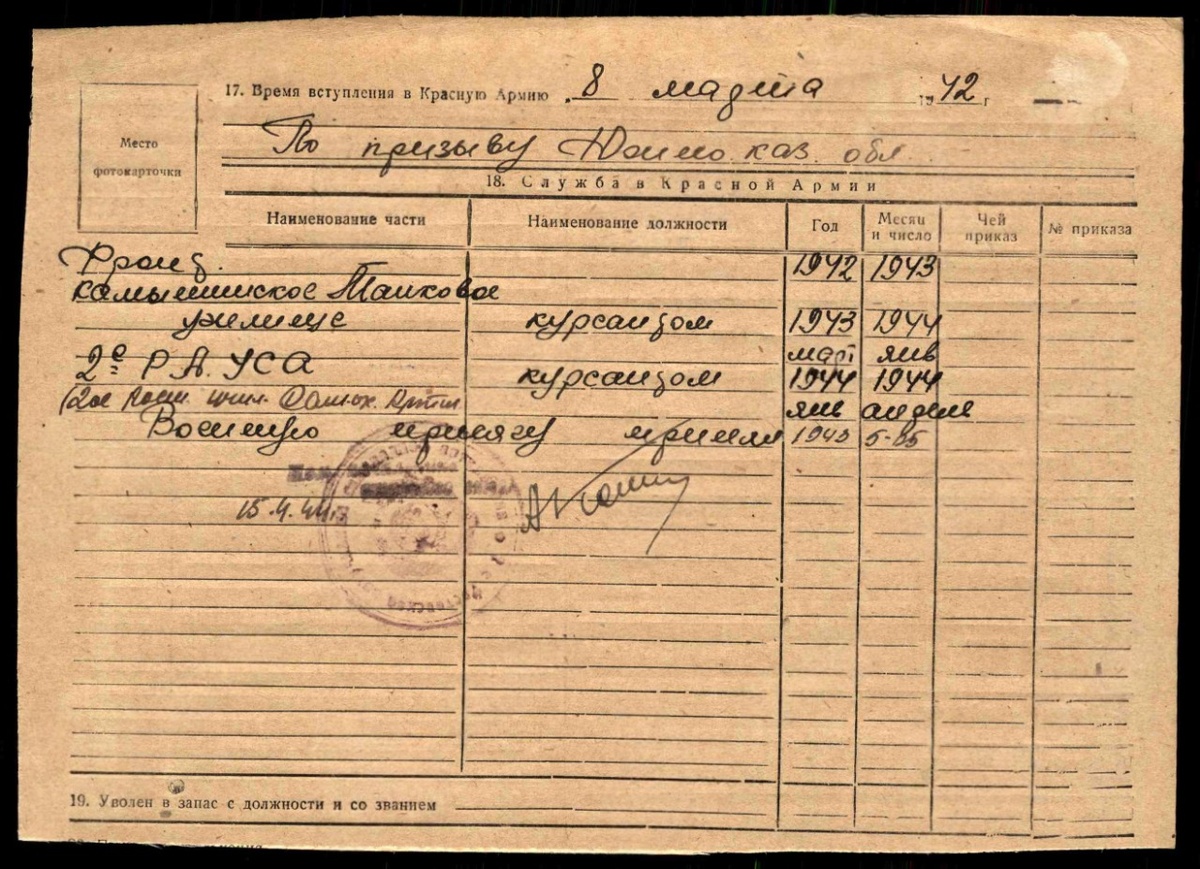 17. Время вступления в Красную Армию 8 марта 1942 г
Место
фотокарточки
По призыву каз. обл.
18. Служба в Красной Армии
Наименование части Наименование должности Год Месяц и число Чей приказ № приказа
Фронт. 1942 1943
Камышинское Танковое
училище курсантом 1943 1944
март янв
2ое Р.А. УСА курсантом 1944 1944
(2ое Рост. учил. Самох. Артил. янв апрель
Военную присягу принял 1943 5-05
15.4.44г.
19. Уволен в запас с должности и со званием